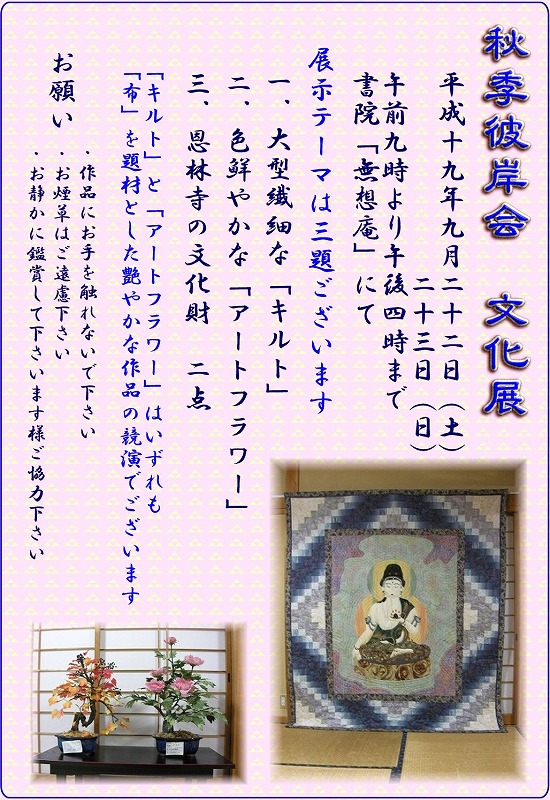 秋季彼岸会　文化展
平成十九年九月二十二日（土）
二十三日（日）
午前九時より午後四時まで
書院「無想庵」にて
展示テーマは三題ございます
一、大型繊細な「キルト」
二、色鮮やかな「アートフラワー」
三、恩林寺の文化財　二点
「キルト」と「アートフラワー」はいずれも
「布」を題材とした艶やかな作品の競演でございます
お願い
・作品にお手を触れないで下さい
・お煙草はご遠慮下さい
・お静かに鑑賞して下さいます様ご協力下さい